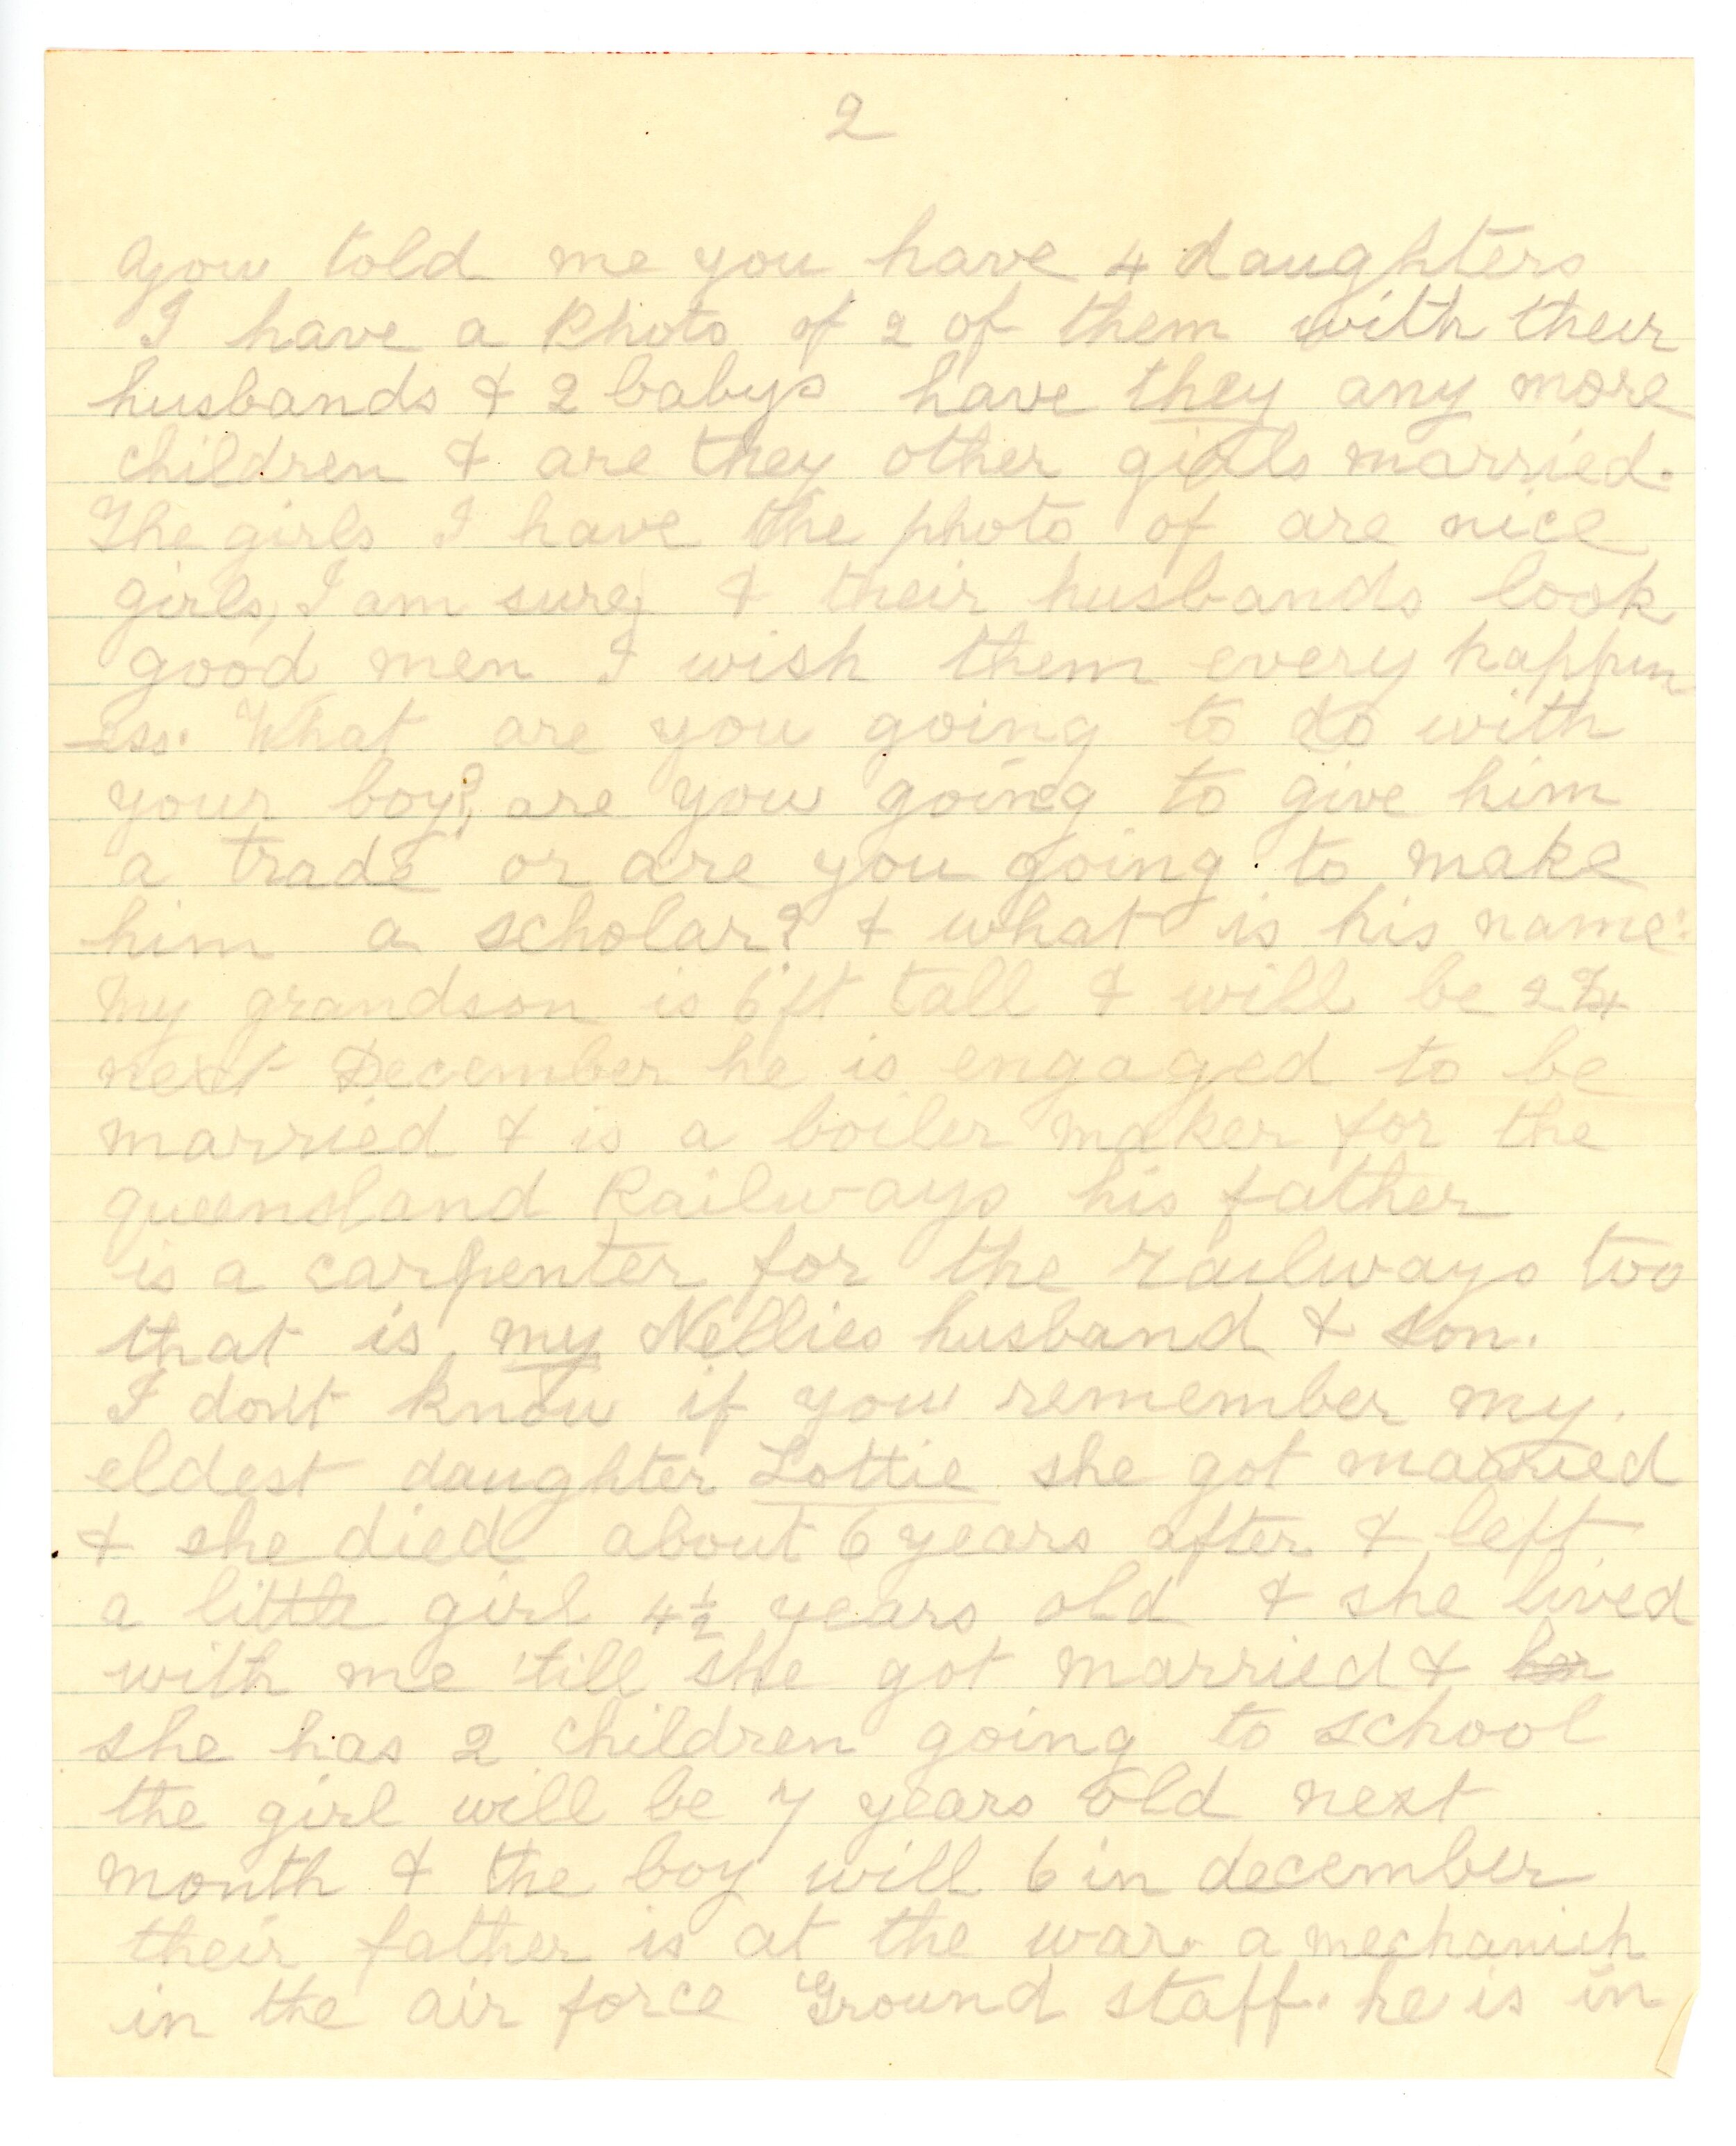 2
you told me you have 4 daughters
I have a Photo of 2 of them with their
husbands & 2 babys have they any more
children & are they other girls married.
The girls I have the photo of are nice
girls, I am sure, & their husbands look
good men I wish them every happin
-ess. What are you going to do with
your boy?, are you going to give him
a trade or are you going to make
him a scholar? & what is his name?
My grandson is 6 ft tall & will be
next December he is engaged to be
married & is a boiler maker for the
queensland Railways his father
is a carpenter for the railways too
that is my Nellies husband & son.
I don't know if you remember my
eldest daughter Lottie she got married
& she died about 6 years after & left
a little girl 4½ years old & she lived
with me 'till she got married &
she has 2 children going to school
the girl will be 7 years old next
month & the boy will 6 in december
their father is at the war. a mechanich
in the air force Ground staff. he is in